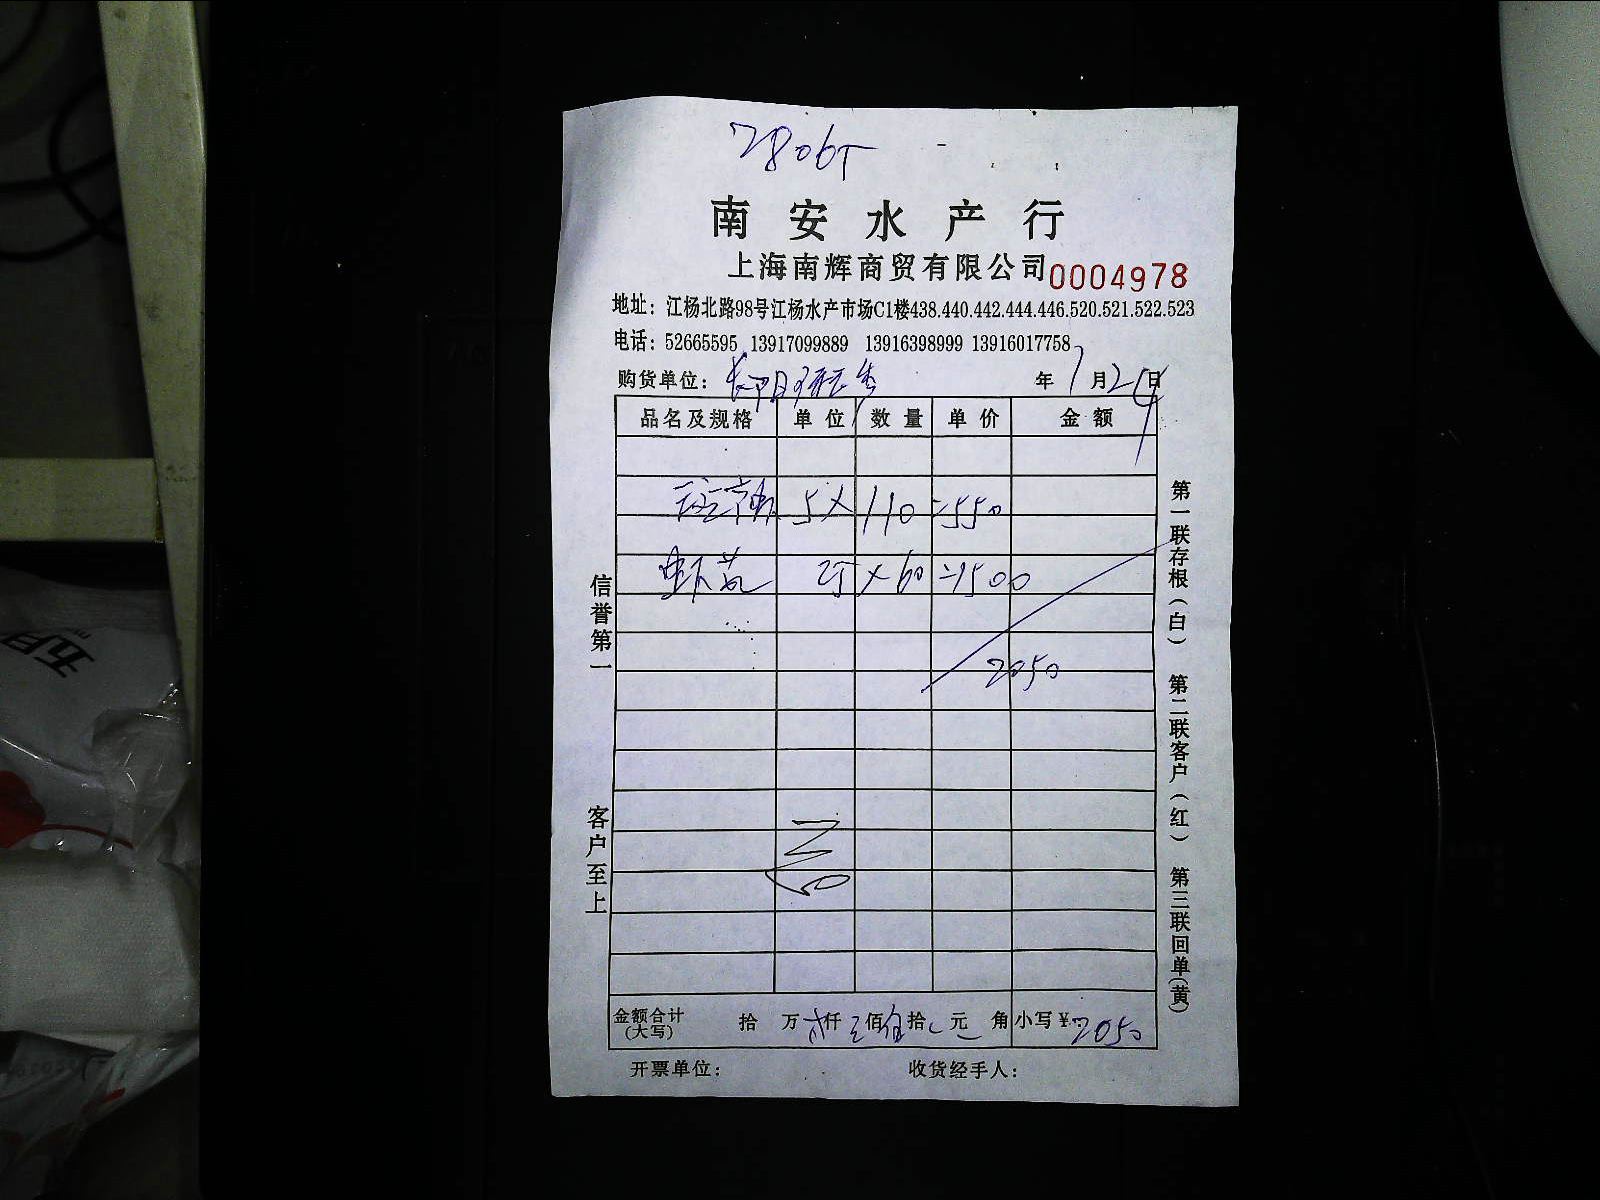 28065
南安水产行
上海南辉商贸有限公司 0004978
地址：江杨北路98号江杨水产市场C1楼438.440.442.444.446.520.521.522.523
电话：52665595 13917099889 13916398999 13916017758
购货单位： 年 7月2 日
品名及规格 单位 数量 单价 金额
5 × 110 =550
虾苋 25 × 60 =1500
2050
信誉第一
客户至上
第一联存根（白） 第二联客户（红） 第三联回单（黄）
金额合计（大写） 拾 万 仟 佰 拾 元 角 小写¥：2050
开票单位： 收货经手人：
五月